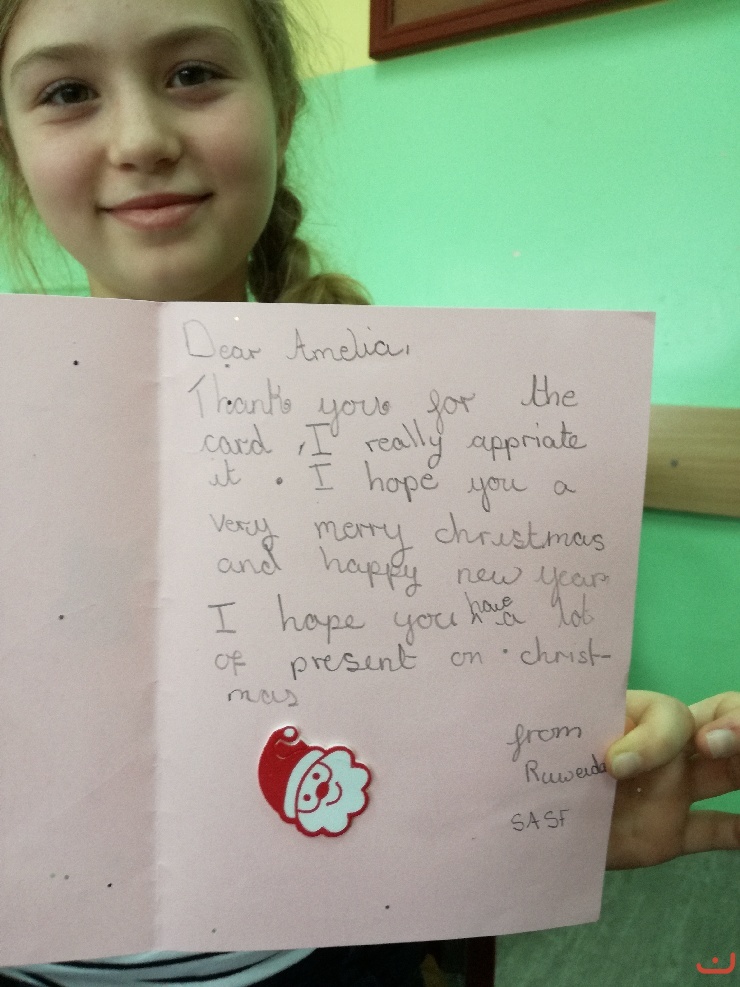 Dear Amelia,
Thank you for the
card , I really appriate
it . I hope you a
very merry christmas
and happy new year
I hope you have a lot
of present on christ-
mas
from
Ruweida
SASF